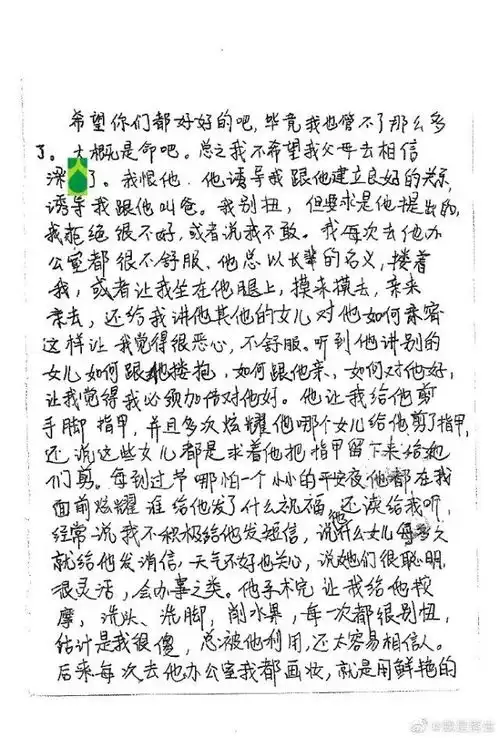 希望你们都好好的吧,毕竟我也管不了那么多
了。大概是命吧。总之我不希望我父母去相信
梁 了。我恨他。他诱导我跟他建立良好的关系,
诱导我跟他叫爸。我别扭,但要求是他提出的,
我拒绝很不好,或者说我不敢。我每次去他办
公室都很不舒服、他总以长辈的名义,搂着
我,或者让我坐在他腿上,摸来摸去,亲来
亲去,还给我讲他其他的女儿对他如何亲密
这样让我觉得很恶心,不舒服。听到他讲别的
女儿如何跟他搂抱,如何跟他亲,如何对他好,
让我觉得我必须加倍对他好。他让我给他剪
手脚指甲,并且多次炫耀他哪个女儿给他剪了指甲,
还说这些女儿都是求着他把指甲留下来给她
们剪。每到过节哪怕一个小小的平安夜他都在我
面前炫耀谁给他发了什么祝福,还读给我听,
经常说我不积极给他发短信,说他什么女儿每多久
就给他发消信,天气不好也关心,说她们很聪明,
很灵活,会办事之类。他手术完让我给他按
摩,洗头、洗脚,削水果,每一次都很别扭,
估计是我很傻,总被他利用,还太容易相信人。
后来每次去他办公室我都画妆,就是用鲜艳的